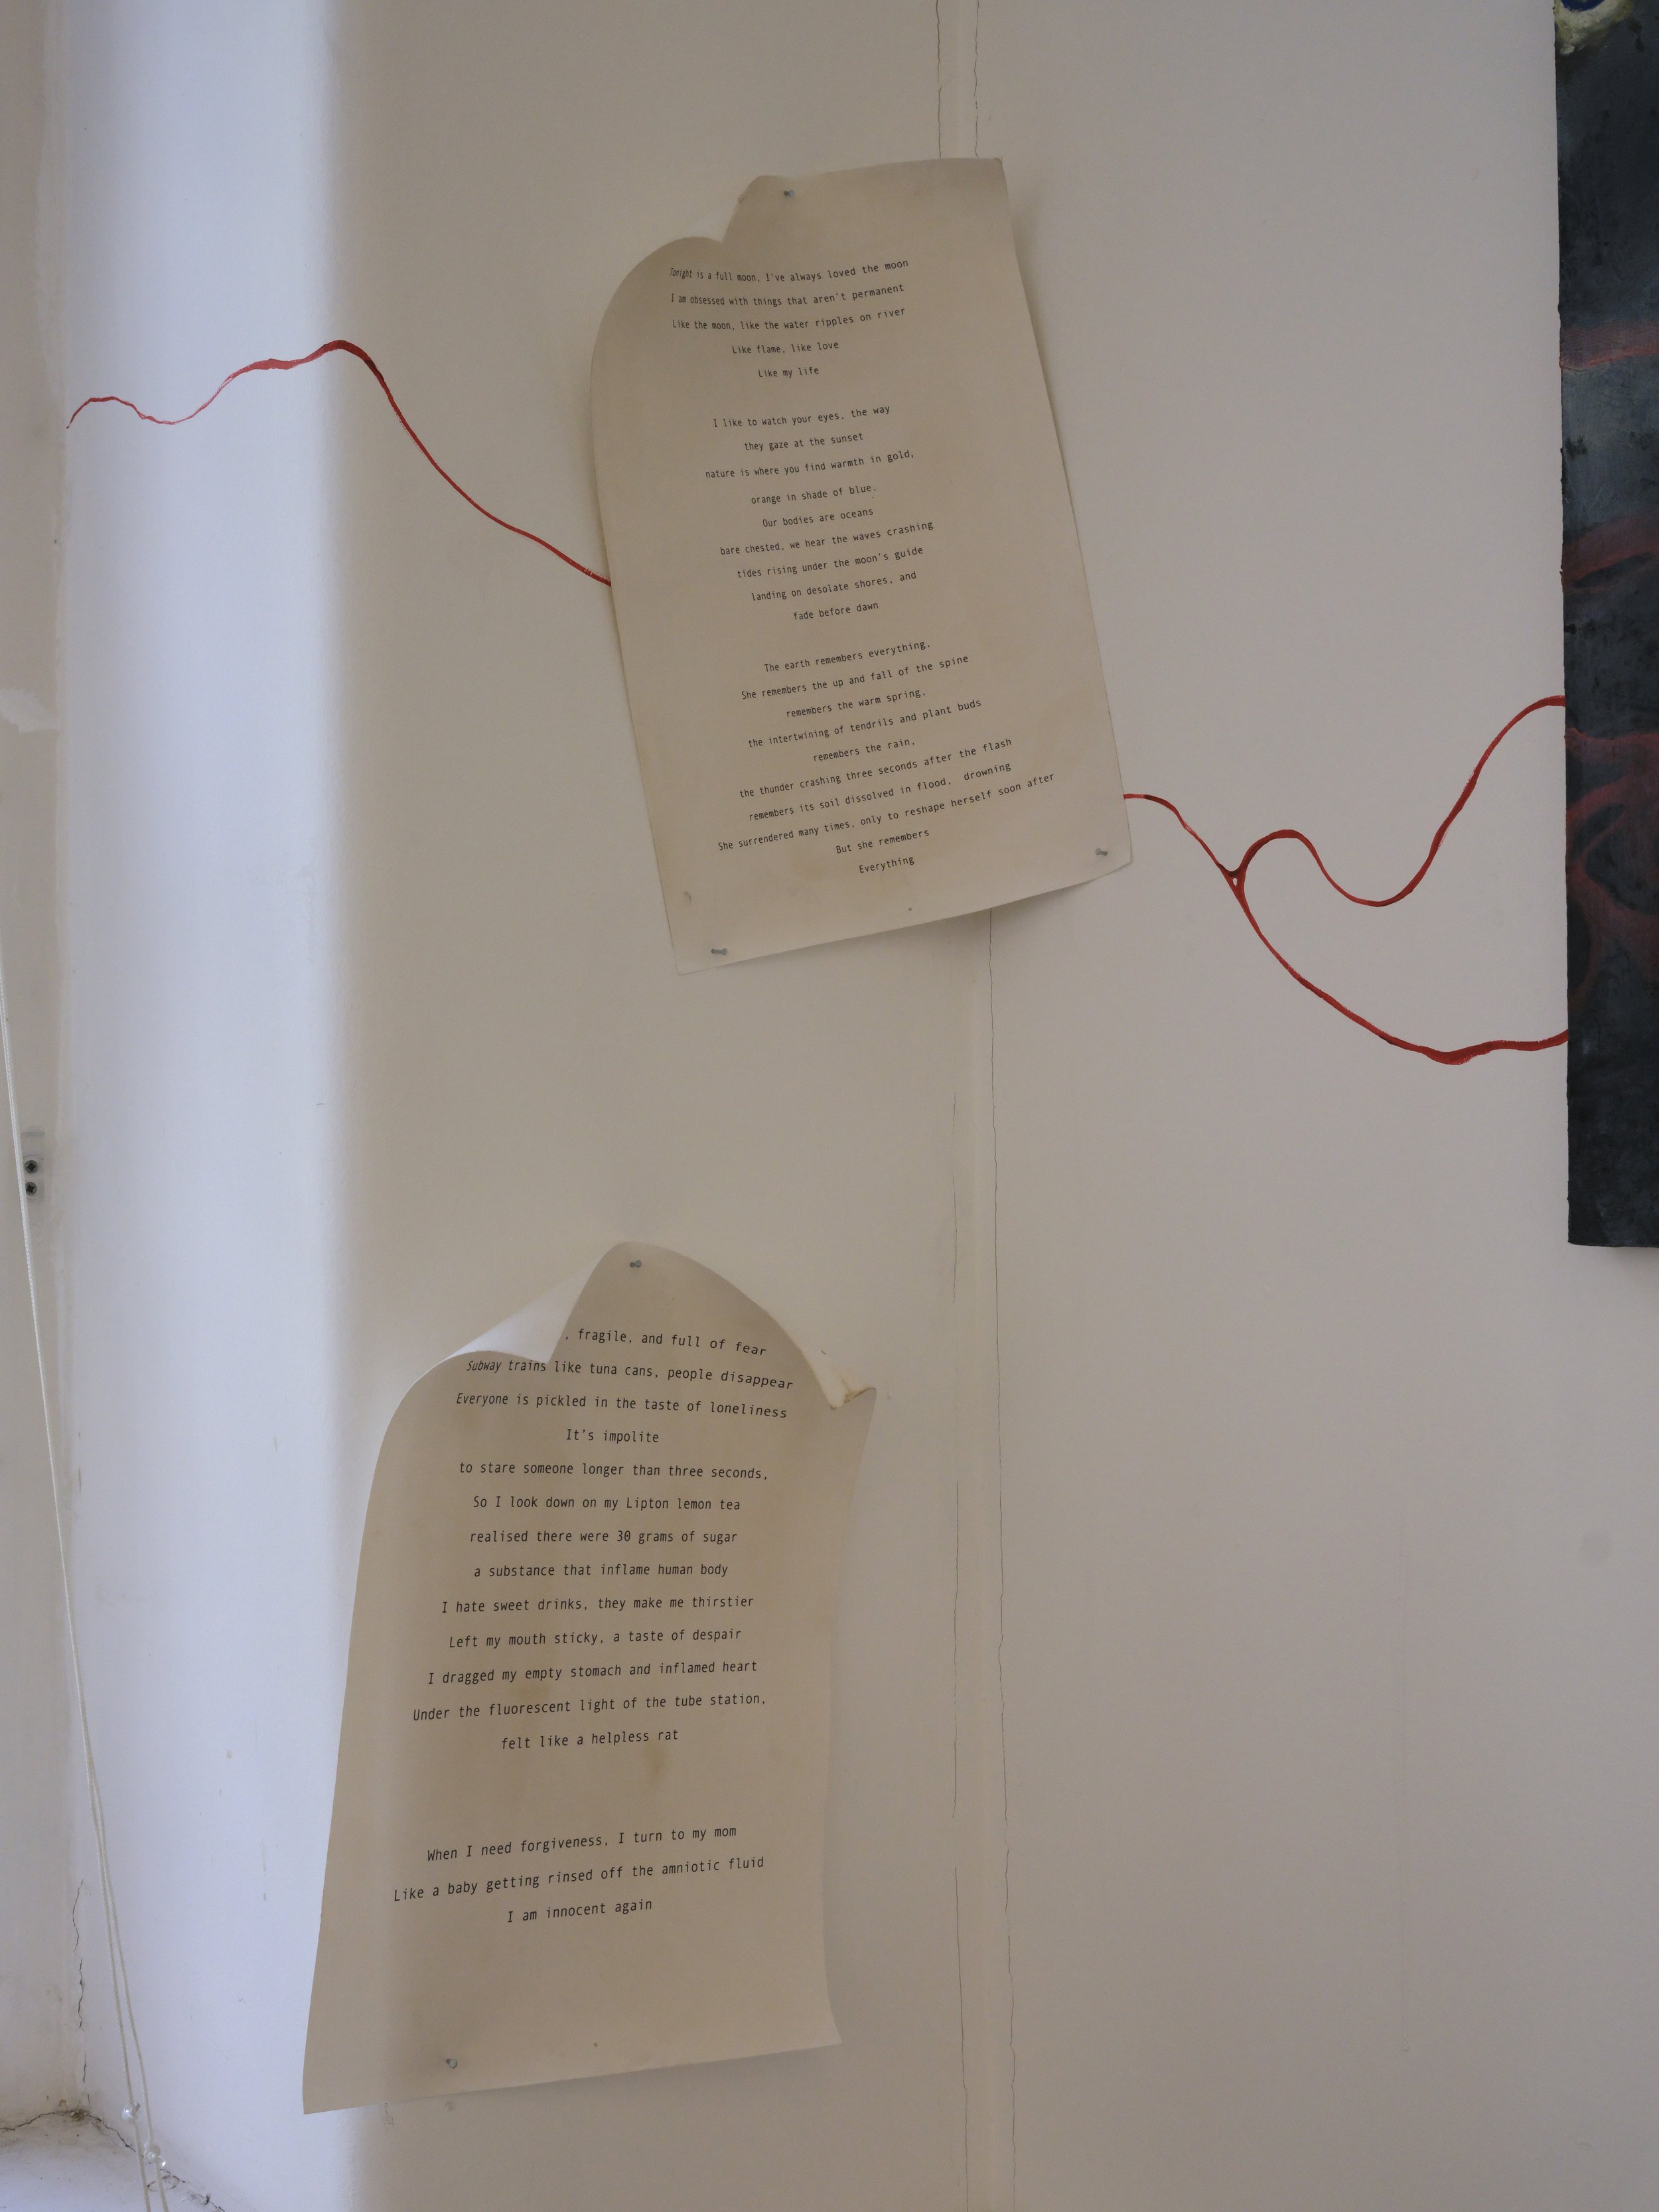 Tonight is a full moon, I've always loved the moon
I am obsessed with things that aren't permanent
Like the moon, like the water ripples on river
Like flame, like love
Like my life
I like to watch your eyes, the way
they gaze at the sunset
nature is where you find warmth in gold,
orange in shade of blue.
Our bodies are oceans
bare chested, we hear the waves crashing
tides rising under the moon's guide
landing on desolate shores, and
fade before dawn
The earth remembers everything.
She remembers the up and fall of the spine
remembers the warm spring,
the intertwining of tendrils and plant buds
remembers the rain,
the thunder crashing three seconds after the flash
remembers its soil dissolved in flood, drowning
She surrendered many times, only to reshape herself soon after
But she remembers
Everything
, fragile, and full of fear
Subway trains like tuna cans, people disappear
Everyone is pickled in the taste of loneliness
It's impolite
to stare someone longer than three seconds,
So I look down on my Lipton lemon tea
realised there were 30 grams of sugar
a substance that inflame human body
I hate sweet drinks, they make me thirstier
Left my mouth sticky, a taste of despair
I dragged my empty stomach and inflamed heart
Under the fluorescent light of the tube station,
felt like a helpless rat
When I need forgiveness, I turn to my mom
Like a baby getting rinsed off the amniotic fluid
I am innocent again